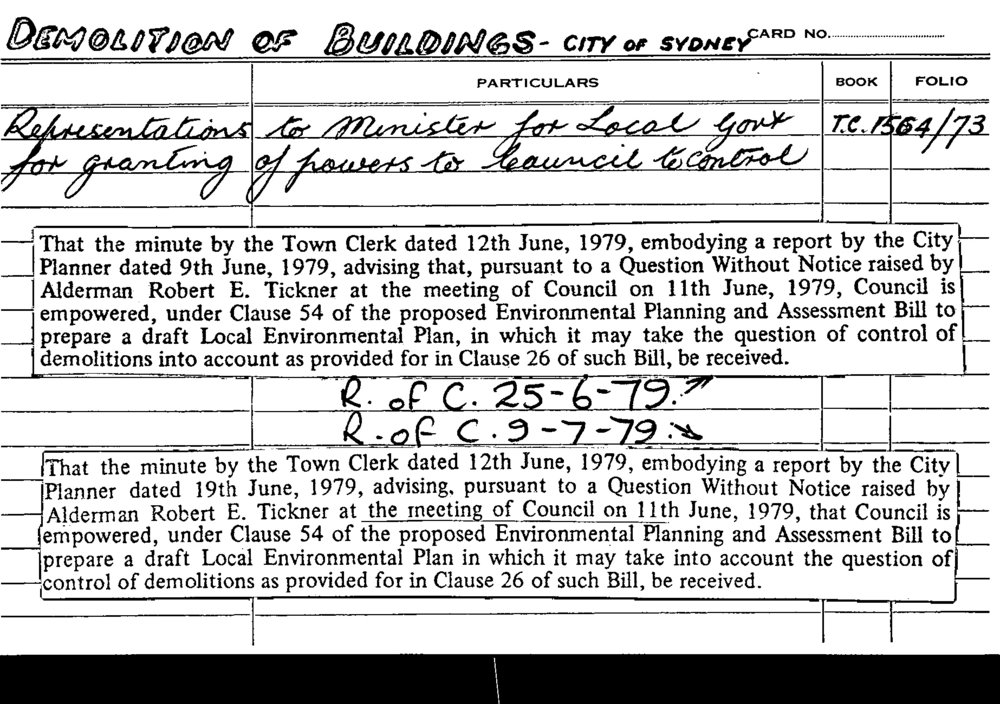 DEMOLITION OF BUILDINGS - CITY OF SYDNEY CARD NO.
PARTICULARS BOOK FOLIO
Representations to Minister for Local Govt T.C. 1564/73
for granting of powers to Council to control
That the minute by the Town Clerk dated 12th June, 1979, embodying a report by the City
Planner dated 9th June, 1979, advising that, pursuant to a Question Without Notice raised by
Alderman Robert E. Tickner at the meeting of Council on 11th June, 1979, Council is
empowered, under Clause 54 of the proposed Environmental Planning and Assessment Bill to
prepare a draft Local Environmental Plan, in which it may take the question of control of
demolitions into account as provided for in Clause 26 of such Bill, be received.
R. of C. 25-6-79.
R. of C. 9-7-79.
That the minute by the Town Clerk dated 12th June, 1979, embodying a report by the City
Planner dated 19th June, 1979, advising, pursuant to a Question Without Notice raised by
Alderman Robert E. Tickner at the meeting of Council on 11th June, 1979, that Council is
empowered, under Clause 54 of the proposed Environmental Planning and Assessment Bill to
prepare a draft Local Environmental Plan in which it may take into account the question of
control of demolitions as provided for in Clause 26 of such Bill, be received.